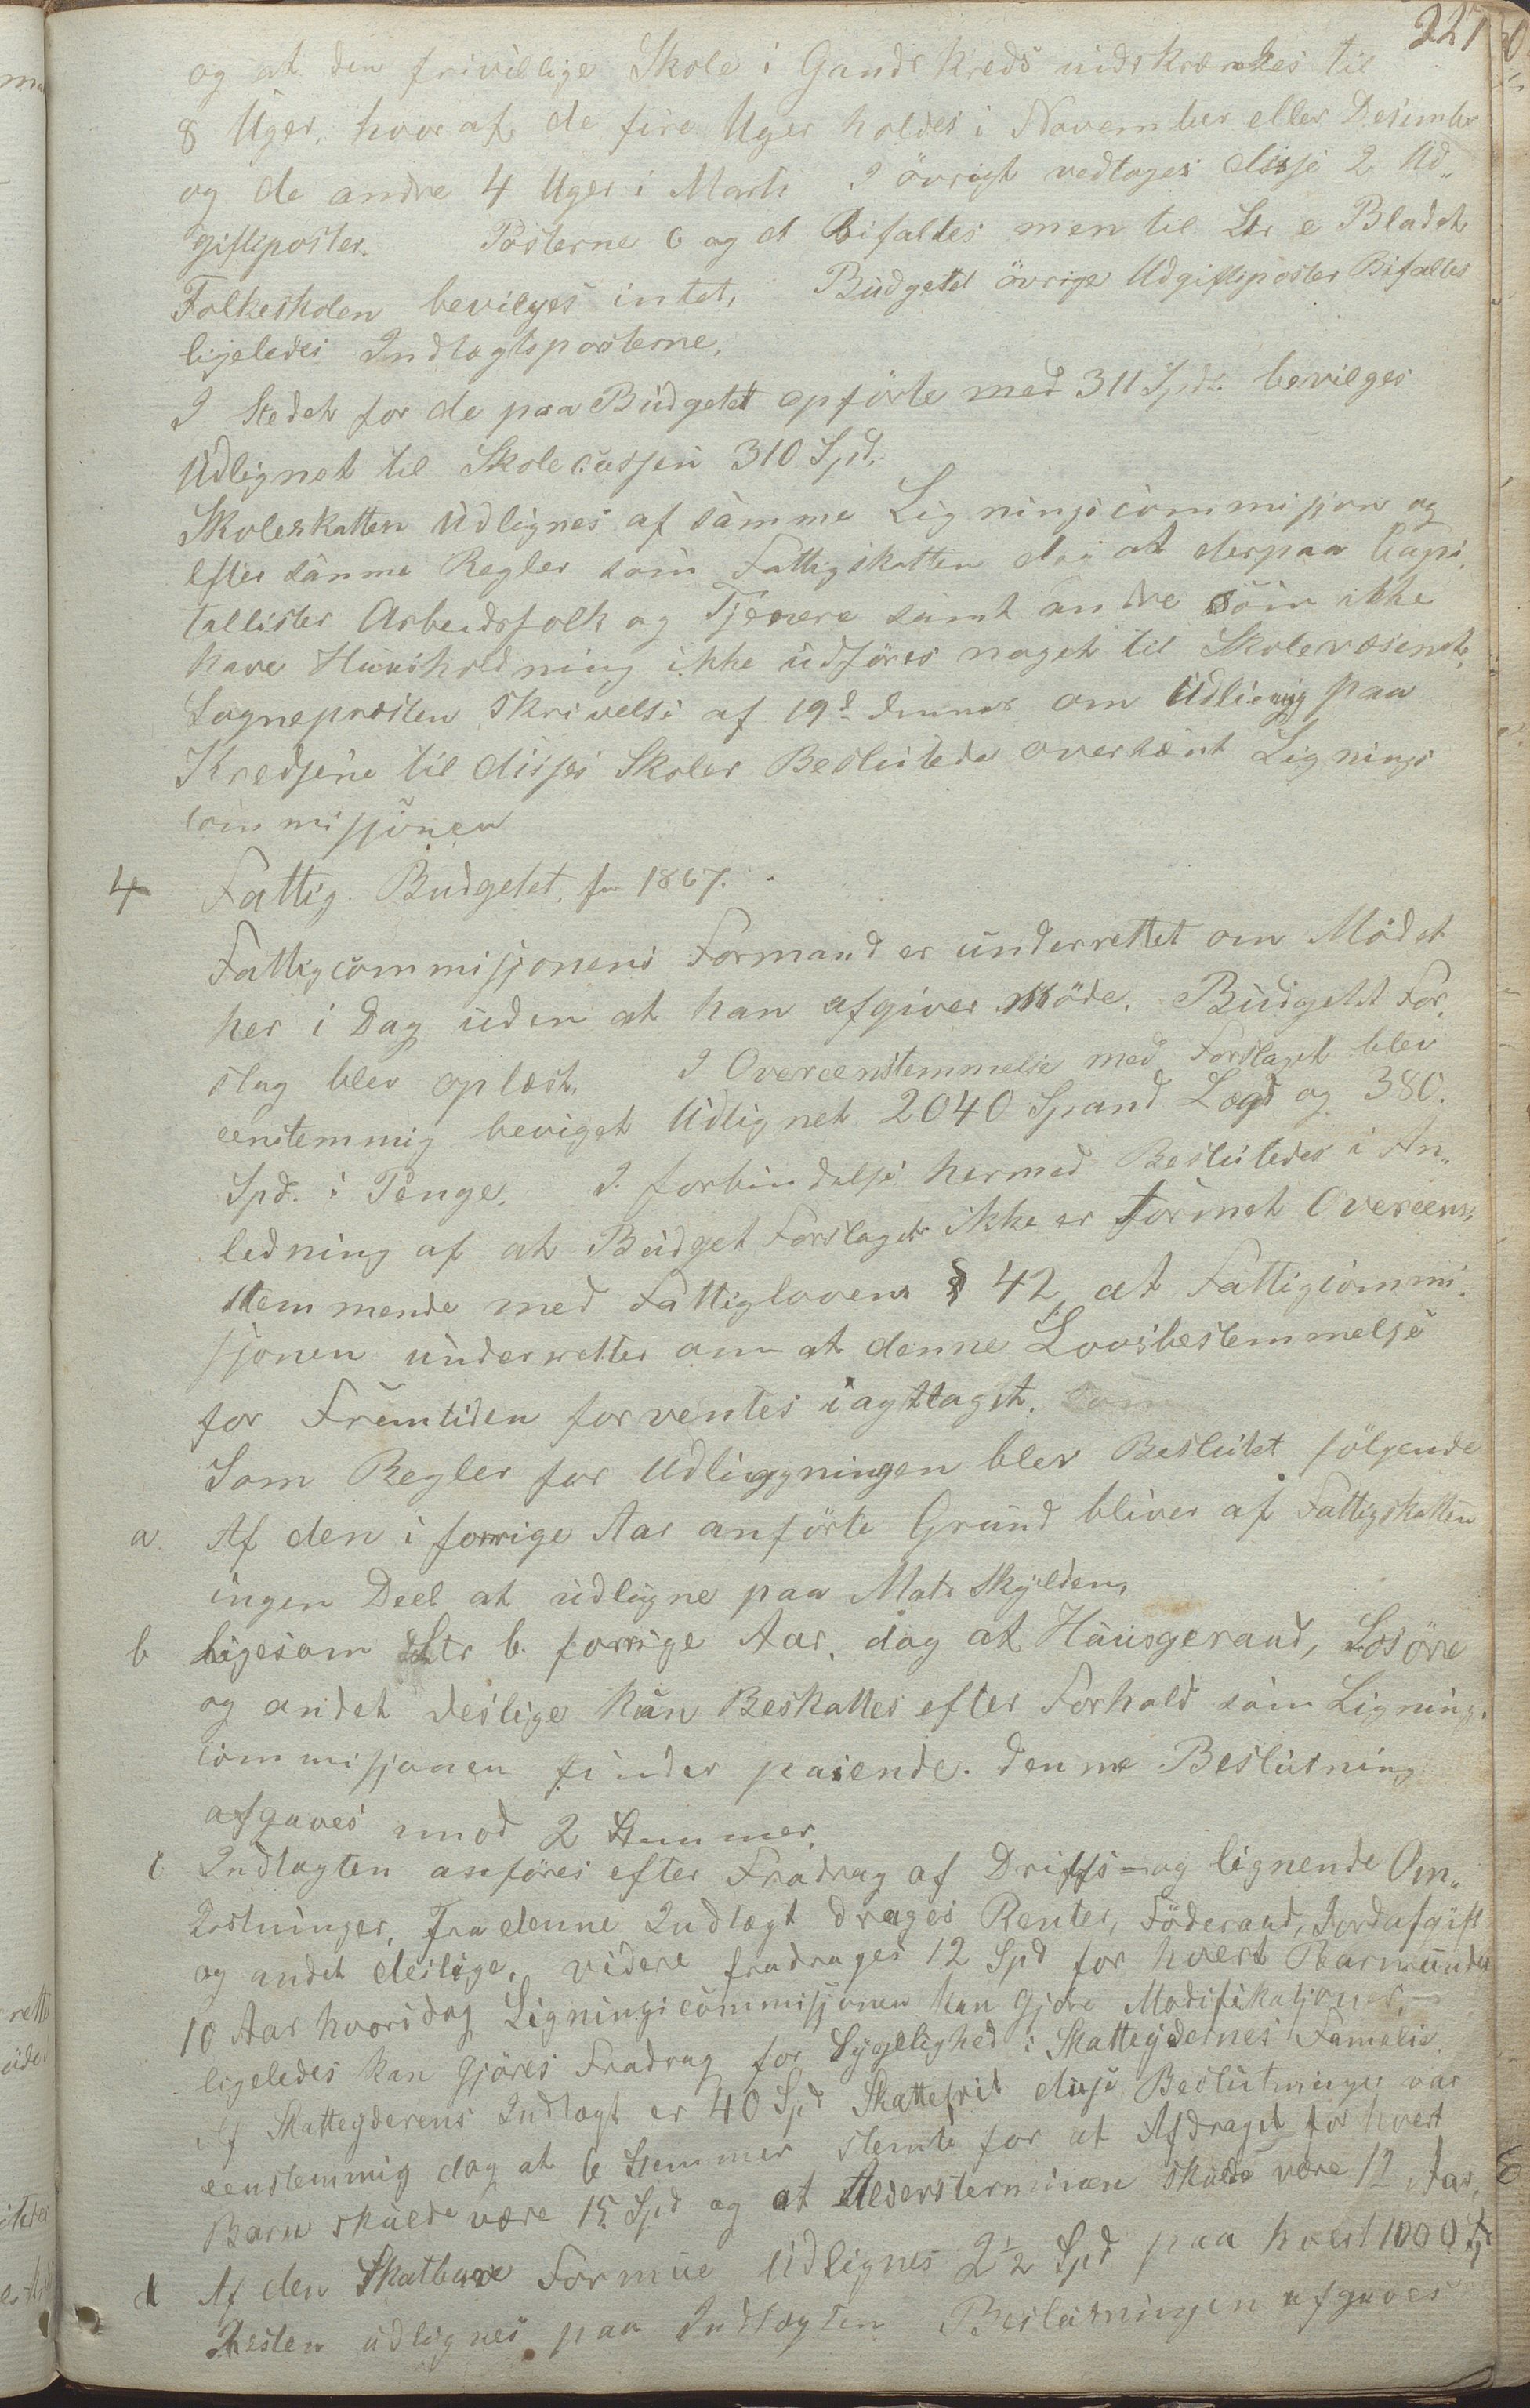 221
og at den frivillige Skole i Gands Kreds indskrænkes til
8 Uger, hvoraf de fire Uger holdes i November eller Desimber
og de andre 4 Uger i Marts I övrigt vedtoges disse 2 Ud„
giftsposter. Posterne c og d bifaltes men til Ltr e Bladet
Folkeskolen bevilges intet, Budgetet övrige Udgiftsposter Bifaltes
ligeledes Indtægtsposterne.
I Stedet for de paa Budgetet opförte med 311 Spd. bevilges
Udlignet til Skolecassen 310 Spd.
Skoleskatten Udlignes af samme Ligningscommisjon og
efter samme Regler som Fattigskatten dog at derpaa Capi„
tallister Arbeidsfolk og Tjenere samt andre som ikke
have Huusholdning ikke udföres noget til Skolevæsenet.
Sognepræsten Skrivelse af 19d dennes om Udligng paa
Kredsene til disses Skoler Besluttede oversendt Lignings
commisjonen
4 Fattig. Budgetet for 1867.
Fattigcommisjonens Formand er underrettet om Mödet
her i Dag uden at han afgiver Möde. Budgetet For„
slag blev oplæst. I Overeenstemmelse med Forslaget blev
eenstemmig beviget Udlignet 2040 Spand Lægd og 380.
Spd. i Penge. I forbindelse hermed Besluttedes i An„
ledning af at Budget Forslaget ikke er formet Overeens„
stemmende med Fattiglovens § 42 at Fattigcommi„
sjonen underretter om at denne Lovsbestemmelse
for Fremtiden forventes iagttaget.
Som Regler for Udligningen blev Besluttet fölgende
a. Af den i forrige Aar anförte Grund bliver af Fattigskatten
ingen Deel at udligne paa Matr Skylden,
b ligesom Ltr b. forrige Aar, dog at Huusgeraad, Lösöre
og andet deslige kan Beskattes efter Forhold som Lignings„
commisjonen finder pasende. denne Beslutning
afgaves imod 2 Stemmer.
c Indtægten anföres efter Fradrag af Drifts- og lignende Om„
kostninger, Fra denne Indtægt drages Renter, Föderaad, Jordafgift
og andet deslige, videre fradrages 12 Spd for hvert Barn under
10 Aar hvori dog Ligningscommisjonen kan gjöre Modifikatjoner,
ligeledes kan gjöres Fradrag for Sygelighed i Skatteydernes Famelie.
Af Skatteyderens Indtægt er 40 Spd Skattefrit disse Beslutninger var
eenstemmig dog at 6 Stemmer stemte for at Afdraget for hvert
Barn skulde være 15 Spd og at Aldersterminen skulde være 12 Aar,
d Af den Skatbare Formue Udlignes 2½ Spd paa hvert 1000 Spd
Resten udlignes paa Indtægten Beslutningen afgaves